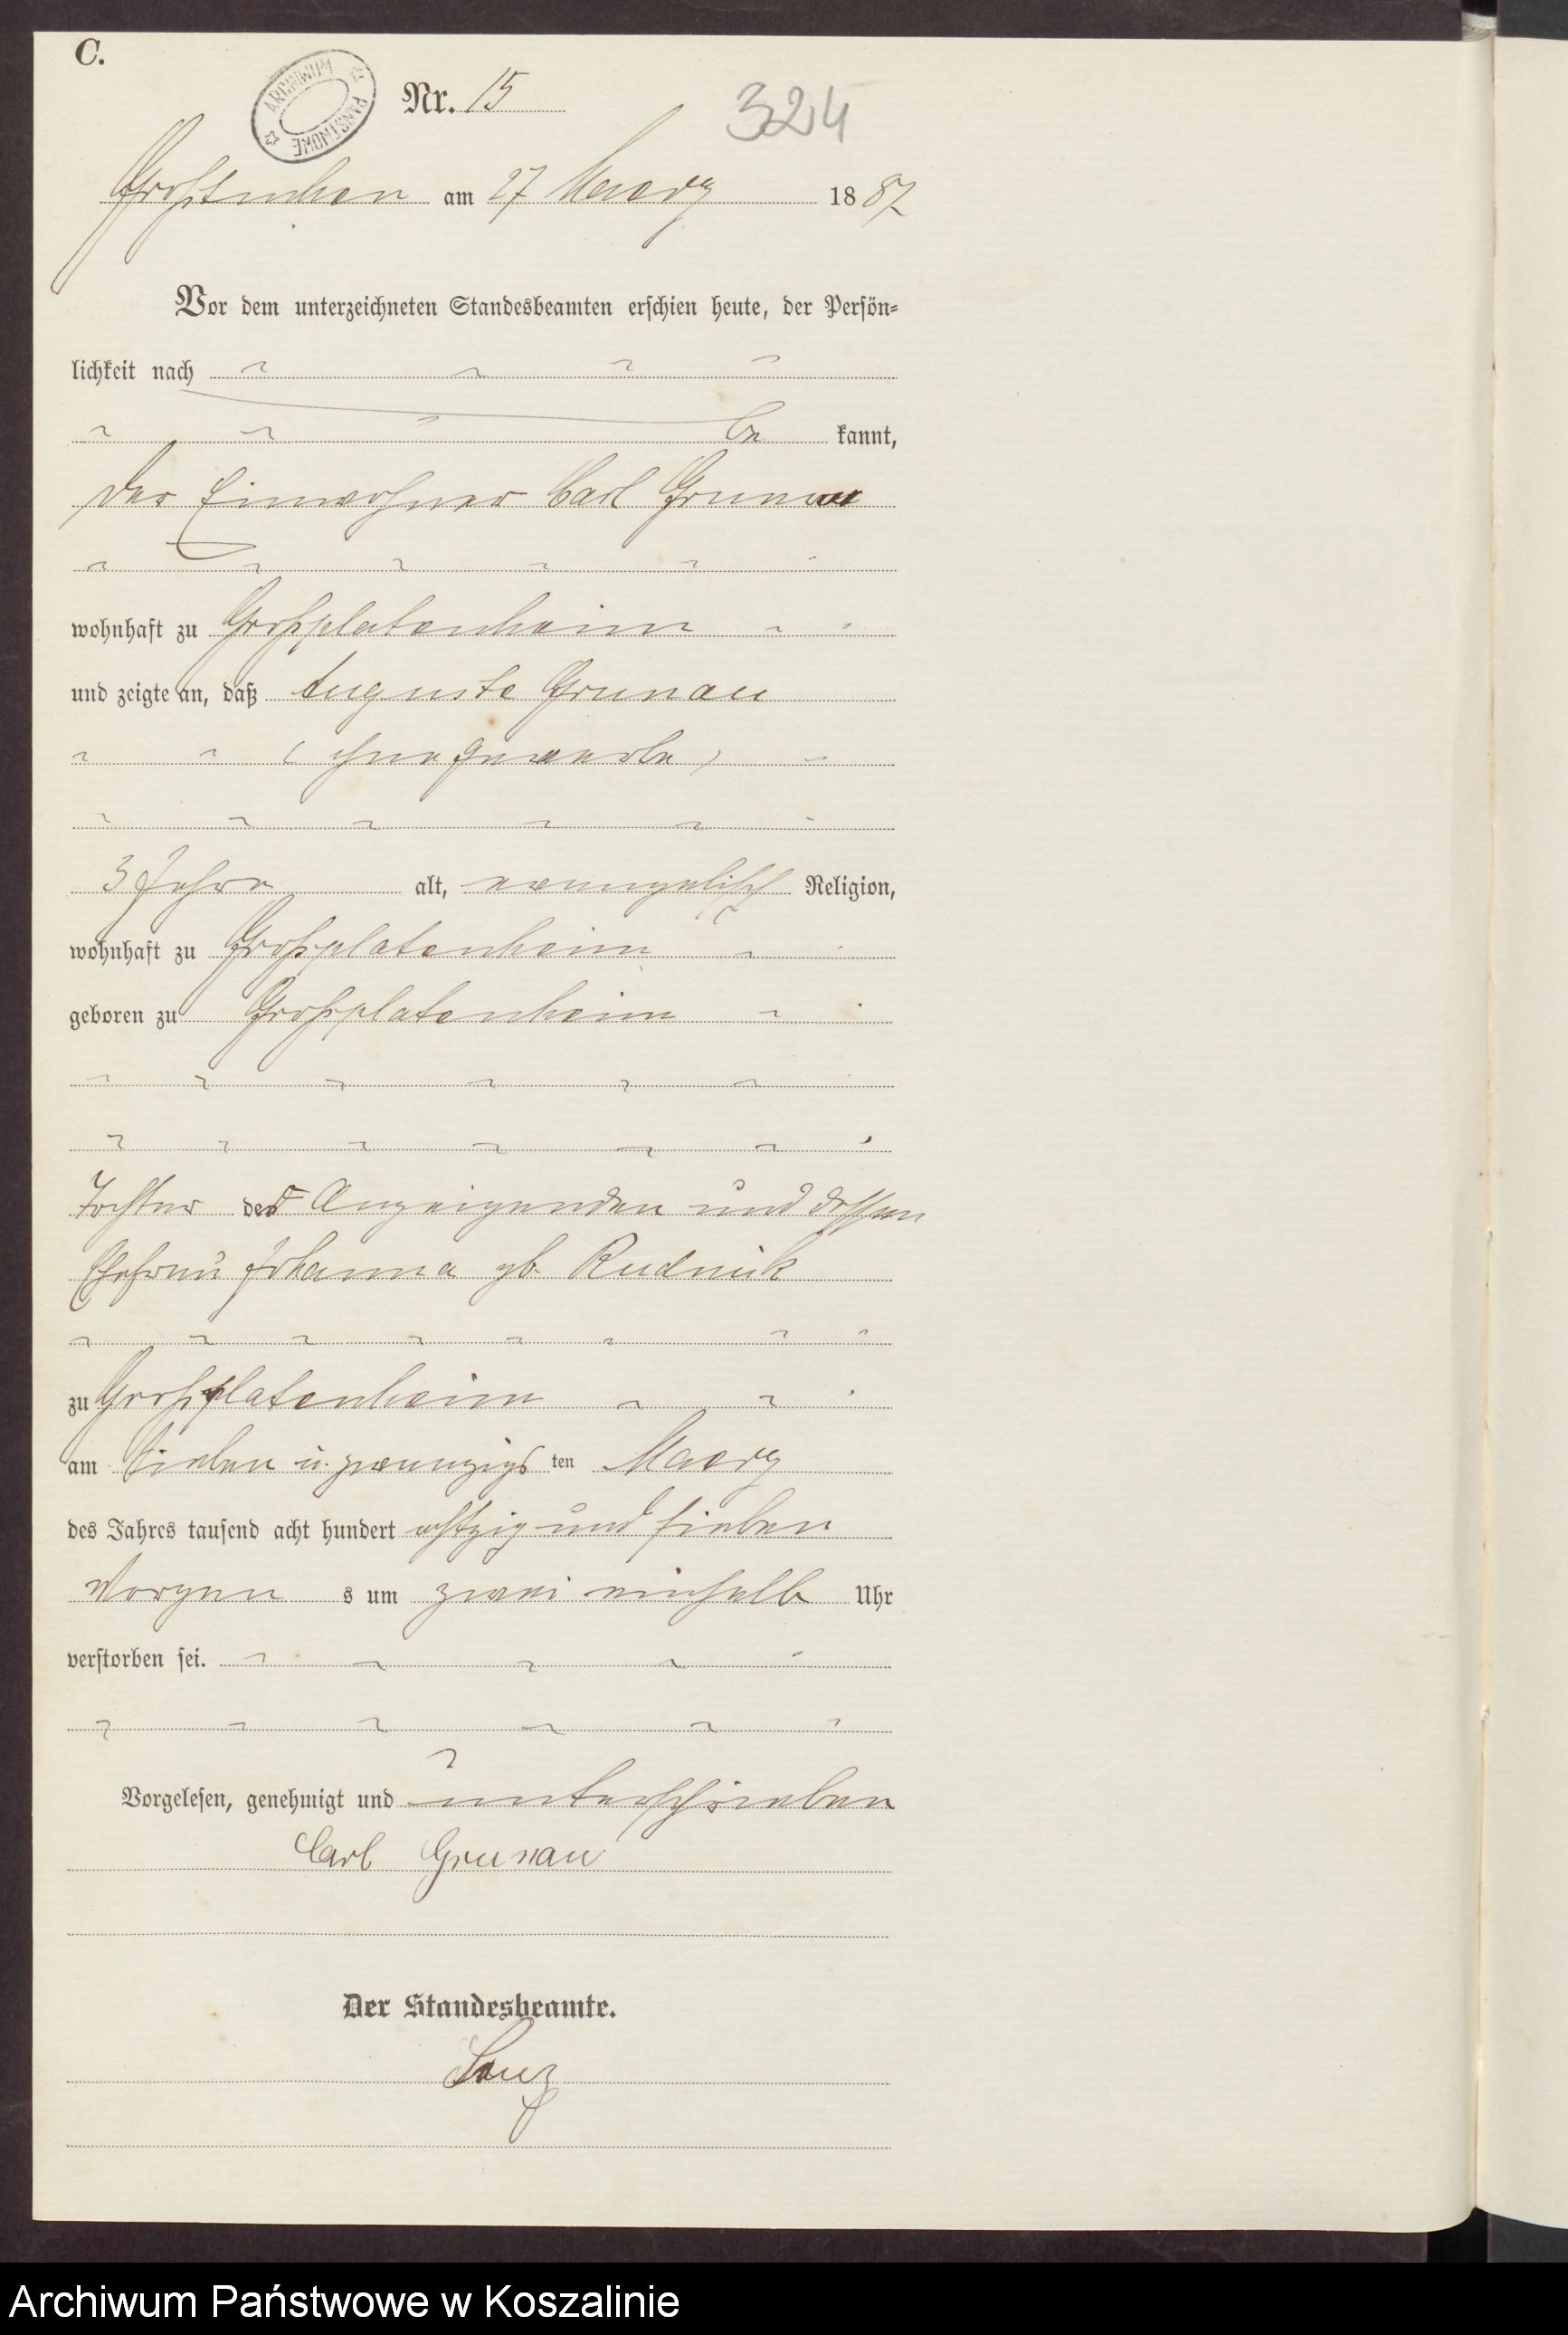 C.
ARCHIWUM PAŃSTWOWE
Nr. 15
324
Großtuchen am 27 Maerz 1887
Vor dem unterzeichneten Standesbeamten erschien heute, der Persön-
lichkeit nach
be kannt,
der Einwohner Carl Grunau
wohnhaft zu Großplatenheim
und zeigte an, daß Auguste Grunau
(ohne Gewerbe)
3 Jahre alt, evangelisch Religion,
wohnhaft zu Großplatenheim
geboren zu Großplatenheim
Tochter des Anzeigenden und dessen
Ehefrau Johanna gb. Rudnick
zu Großplatenheim
am Sieben u. zwanzigs ten Maerz
des Jahres tausend acht hundert achtzig und sieben
Morgen s um zwei einhalb Uhr
verstorben sei.
Vorgelesen, genehmigt und unterschrieben
Carl Grunau
Der Standesbeamte.
Archiwum Państwowe w Koszalinie